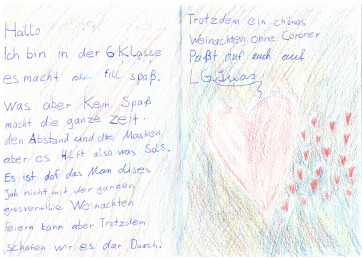 Hallo
Ich bin in der 6 Klasse
es macht fill spaß.
Was aber Kein Spaß
macht die ganze zeit.
den Abstand und die Masken,
aber es Hilft also was Sols.
Es ist dof das Man dises
Jah nicht mit der ganzen
grosvermilie Weinachten
feiern kann aber Trotzdem
schafen wir es dar Durch.
Trotzdem ein schönes
Weinachten ohne Coroner
Paßt auf euch auf
L.G.